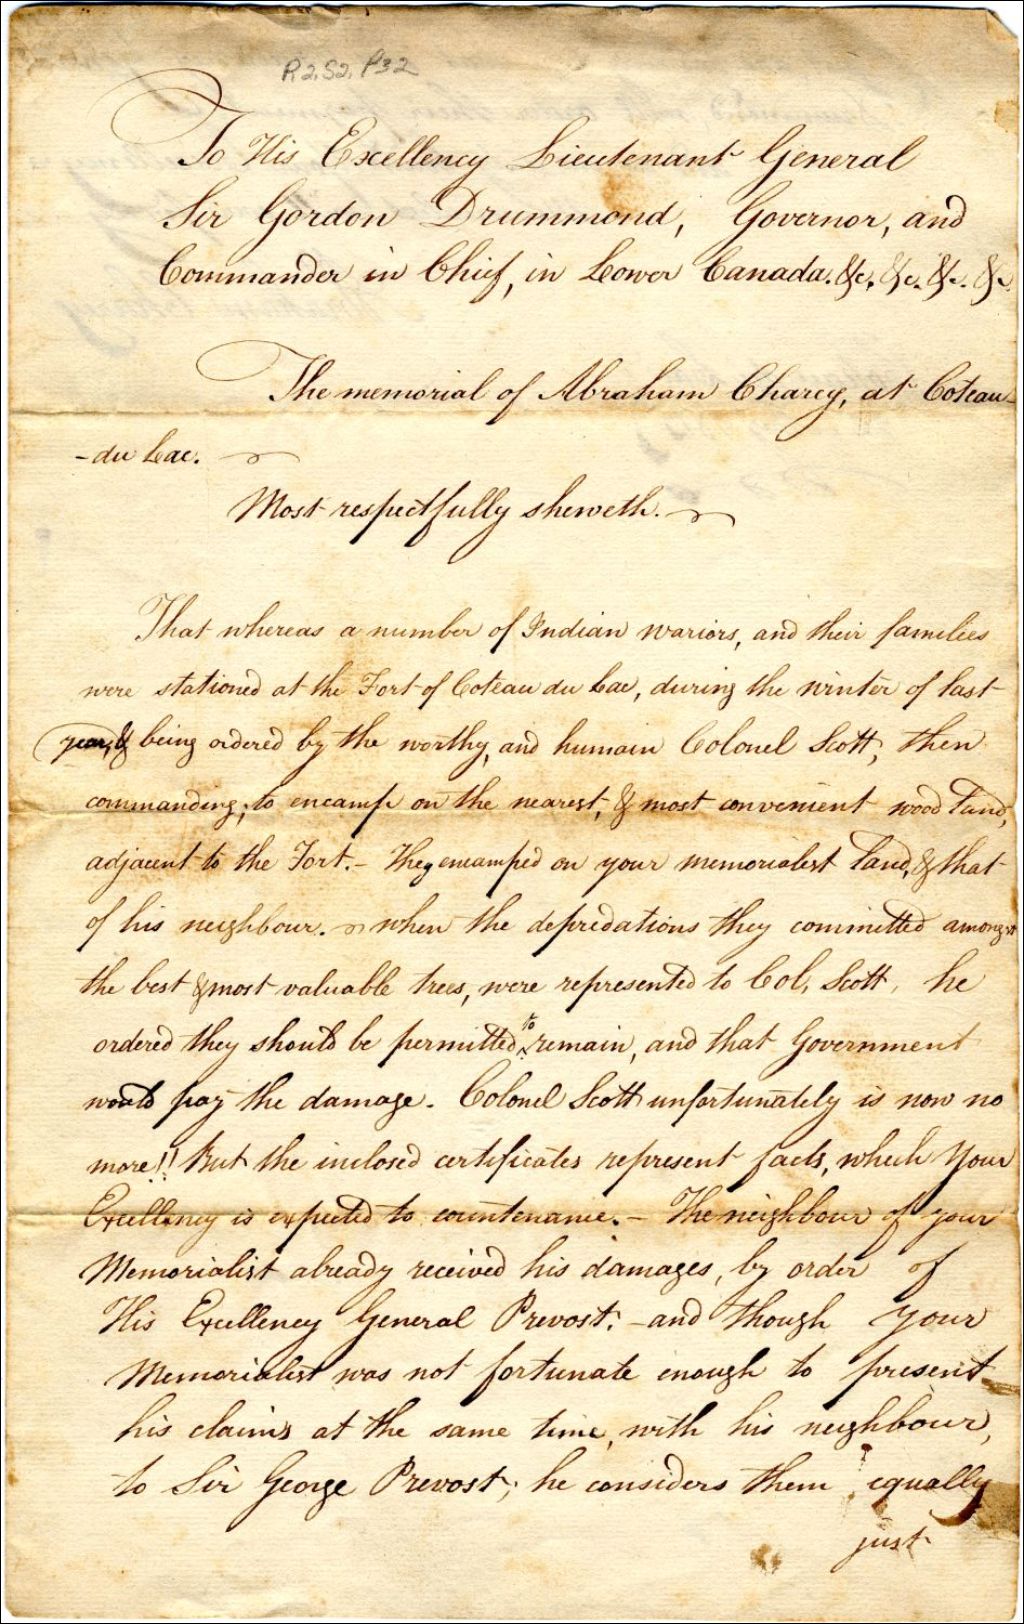 R2, S2, P32
To His Excellency Lieutenant General
Sir Gordon Drummond, Governor, and
Commander in Chief, in Lower Canada. &c, &c. &c. &c.
The memorial of Abraham Charey, at Coteau
-du Lac.
Most respectfully sheweth.
That whereas a number of Indian wariors, and their families
were stationed at the Fort of Coteau du Lac, during the winter of last
year, & being ordered by the worthy, and humain Colonel Scott, then
commanding, to encamp on the nearest, & most convenient wood land,
adjacent to the Fort. - They encamped on your memorialest land, & that
of his neighbour. when the depredations they committed amongst
the best & most valuable trees, were represented to Col, Scott, he
ordered they should be permitted to remain, and that Government
would pay the damage. Colonel Scott unfortunately is now no
more!! But the inclosed certificates represent facts, which Your
Excellency is expected to countenance. - The neighbour of your
Memorialist already received his damages, by order of
His Excellency General Prevost. - and though your
Memorialist was not fortunate enough to present
his claims at the same time, with his neighbour,
to Sir George Prevost; he considers them equally
just